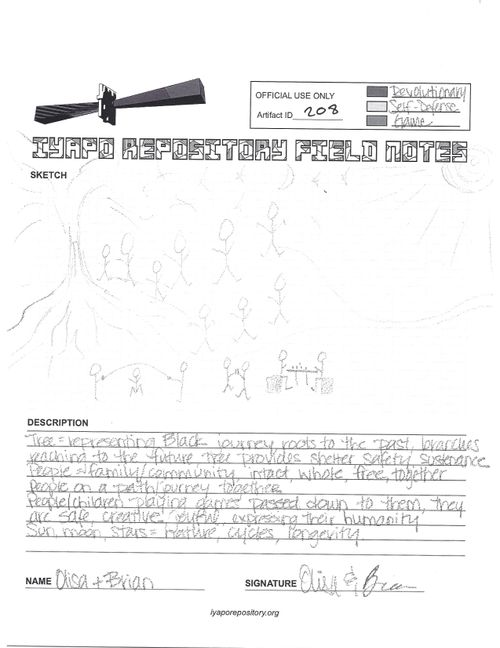 OFFICIAL USE ONLY
Artifact ID 208
Revolutionary
Self-Defense
Game
IYAPO REPOSITORY FIELD NOTES
SKETCH
DESCRIPTION
Tree = representing Black journey roots to the past, branches
reaching to the future Tree provides shelter safety sustenance
People = family/community, intact, whole, free, together
People on a path/journey together
People/children playing games passed down to them, they
are safe, creative, joyful, expressing their humanity
Sun, moon, stars = nature, cycles, longevity
NAME Olisa + Brian
SIGNATURE
iyaporepository.org